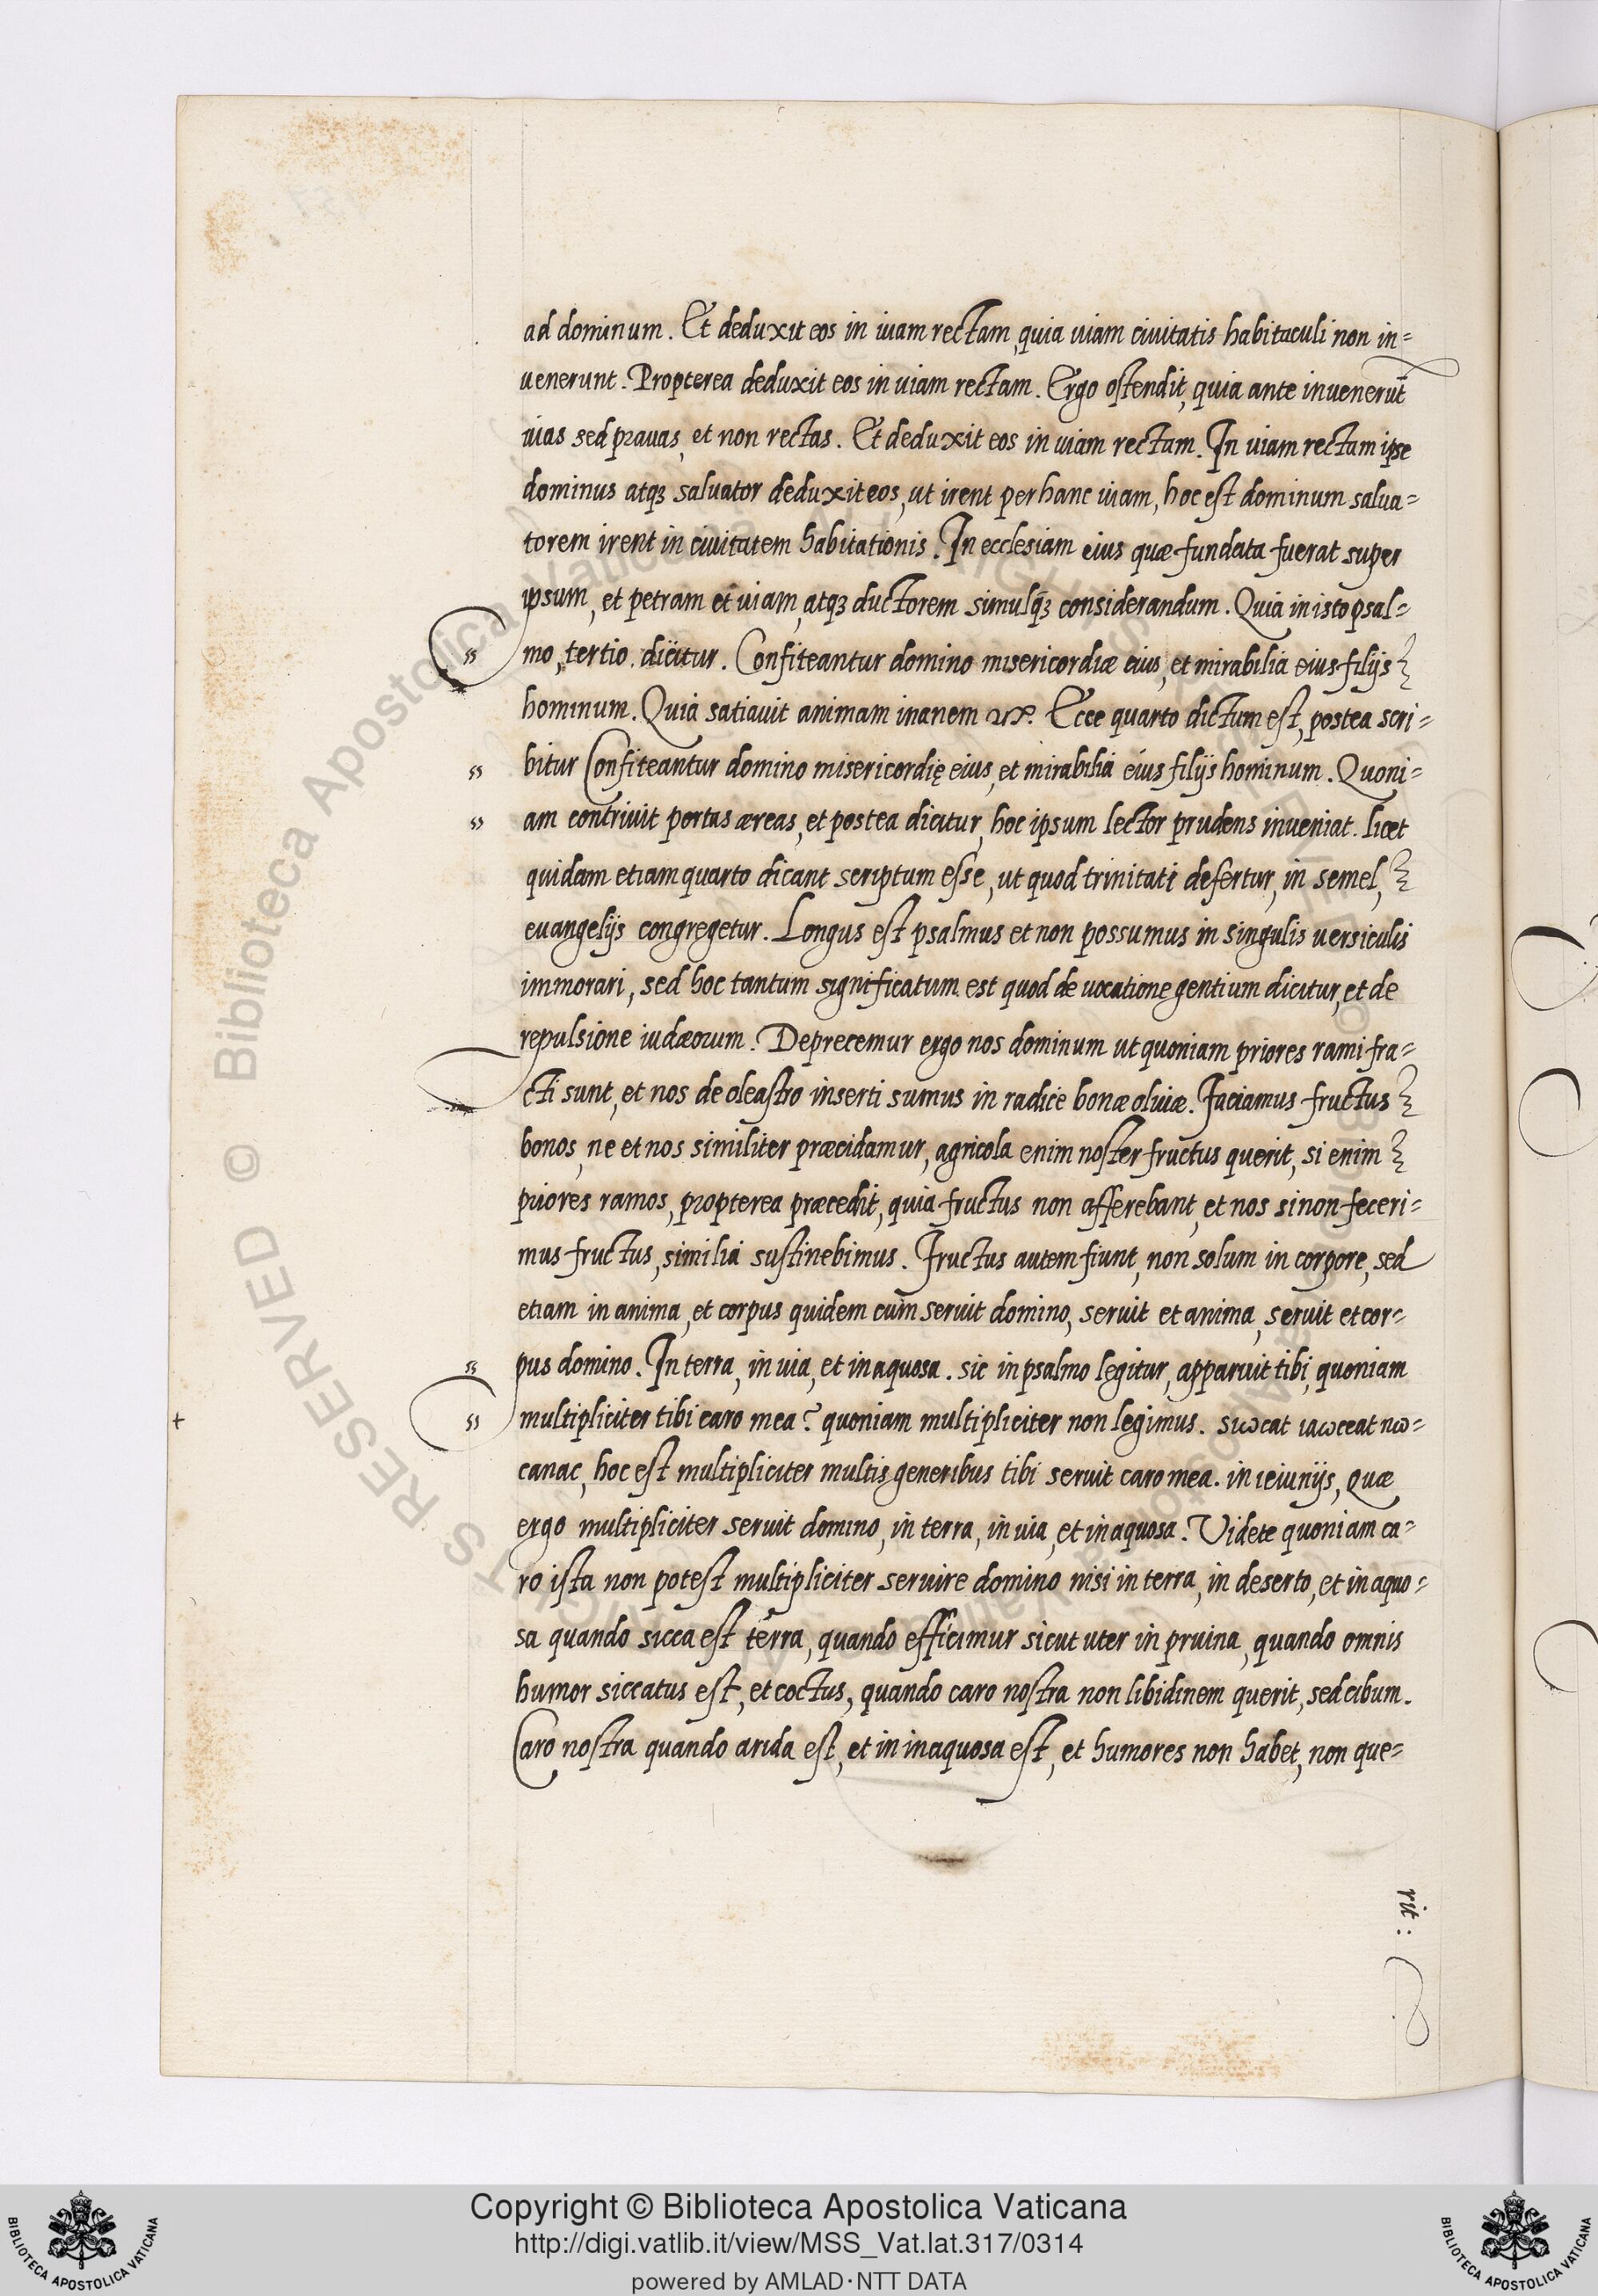 ad dominum. Et deduxit eos in uiam rectam, quia uiam ciuitatis habitaculi non in=
uenerunt. Propterea deduxit eos in uiam rectam. Ergo ostendit, quia ante inuenerūt
uias sed prauas, et non rectas. Et deduxit eos in uiam rectam. In uiam rectam ipse
dominus atqꝫ saluator deduxit eos, ut irent per hanc uiam, hoc est dominum salua=
torem irent in ciuitatem habitationis. In ecclesiam eius quæ fundata fuerat super
ipsum, et petram et uiam, atqꝫ ductorem simulqꝫ considerandum. Quia in isto psal=
mo, tertio dicitur. Confiteantur domino misericordiæ eius, et mirabilia eius filijs
hominum. Quia satiauit animam inanem Ecce quarto dictum est, postea scri=
bitur Confiteantur domino misericordię eius, et mirabilia eius filijs hominum. Quoni=
am contriuit portas æreas, et postea dicitur, hoc ipsum lector prudens inueniat. licet
quidam etiam quarto dicant scriptum esse, ut quod trinitati defertur, in semel,
euangelijs congregetur. Longus est psalmus et non possumus in singulis uersiculis
immorari, sed hoc tantum significatum est quod de uocatione gentium dicitur, et de
repulsione iudæorum. Deprecemur ergo nos dominum ut quoniam priores rami fra=
cti sunt, et nos de oleastro inserti sumus in radice bonæ oliuæ. Faciamus fructus
bonos, ne et nos similiter præcidamur, agricola enim noster fructus querit, si enim
priores ramos, propterea præcedit, quia fructus non afferebant, et nos si non feceri=
mus fructus, similia sustinebimus. Fructus autem fiunt, non solum in corpore, sed
etiam in anima, et corpus quidem cum seruit domino, seruit et anima, seruit et cor=
pus domino. In terra, in uia, et inaquosa. sic in psalmo legitur, apparuit tibi, quoniam
multipliciter tibi caro mea? quoniam multipliciter non legimus. sιωcat ιaωceat nω=
canac, hoc est multipliciter multis generibus tibi seruit caro mea. in ieiunijs, Quæ
ergo multipliciter seruit domino, in terra, in uia, et inaquosa? Videte quoniam ca=
ro ista non potest multipliciter seruire domino nisi in terra, in deserto, et in aquo=
sa quando sicca est terra, quando efficimur sicut uter in pruina, quando omnis
humor siccatus est, et coctus, quando caro nostra non libidinem querit, sed cibum.
Caro nostra quando arida est, et in inaquosa est, et humores non habet, non que=
rit:
© Biblioteca Apostolica Vaticana ALL RIGHTS RESERVED
Copyright © Biblioteca Apostolica Vaticana
http://digi.vatlib.it/view/MSS_Vat.lat.317/0314
powered by AMLAD·NTT DATA
BIBLIOTECA APOSTOLICA VATICANA
BIBLIOTECA APOSTOLICA VATICANA